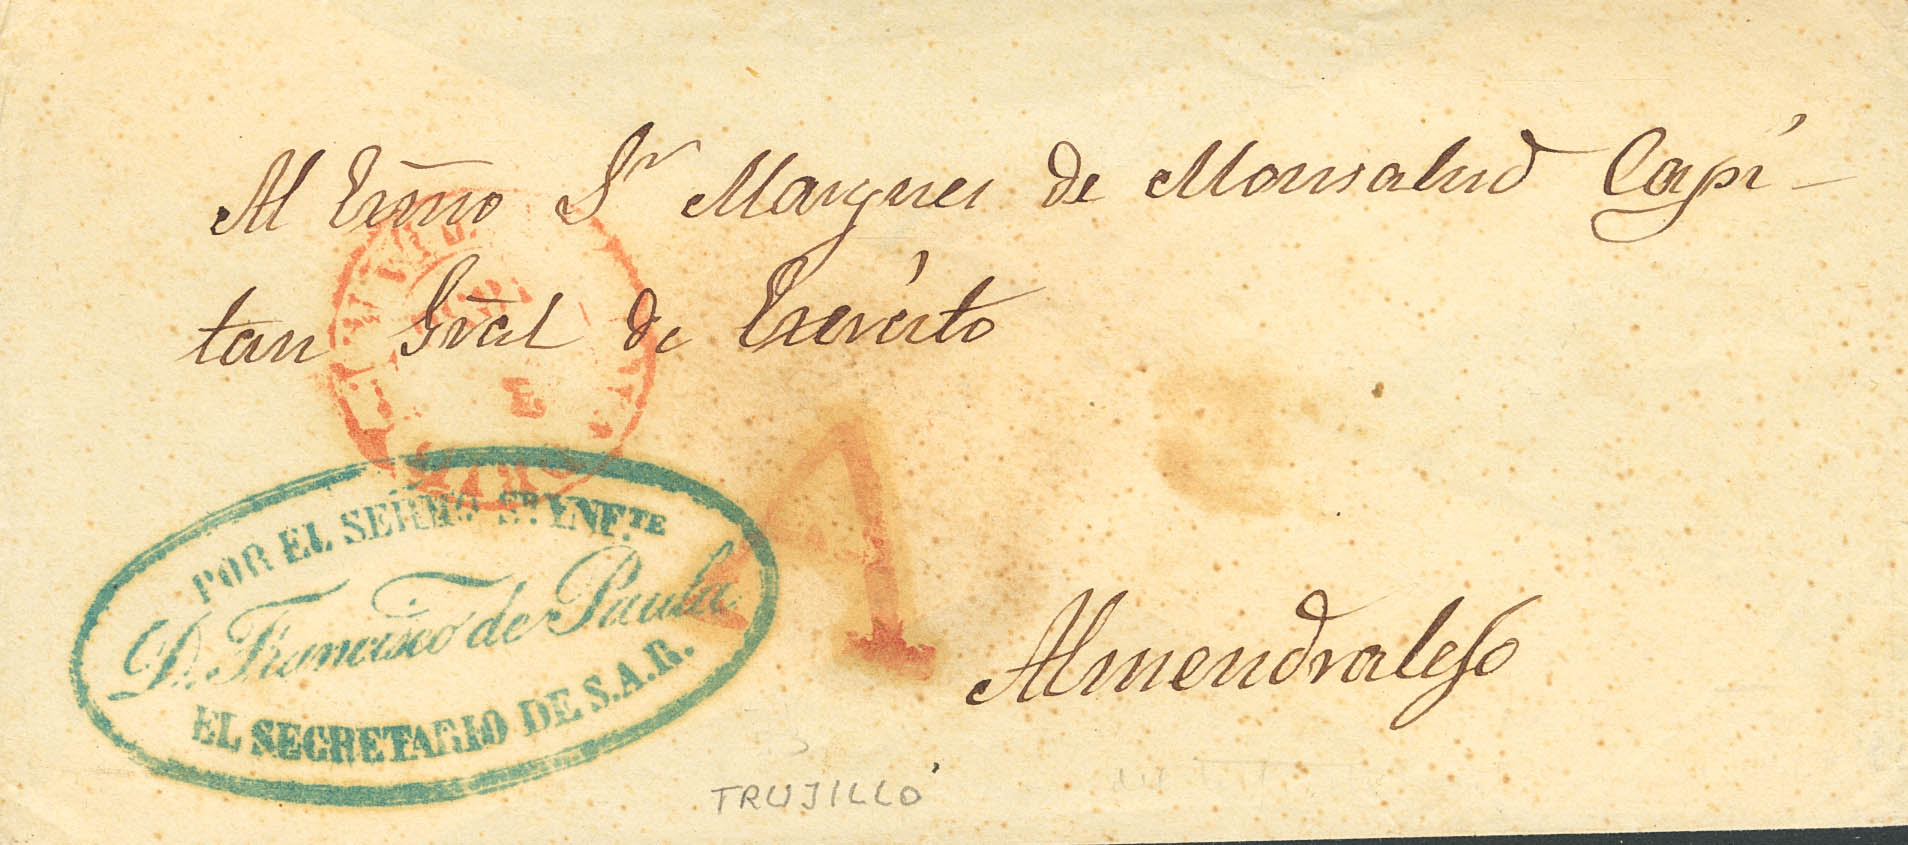 Al Exmo Sr Marques de Monsalud Capi-
tan Gral de Exercito
POR EL SERMO Sr. YNF.TE
D. Francisco de Paula.
EL SECRETARIO DE S.A.R.
Almendralejo
TRUJILLO